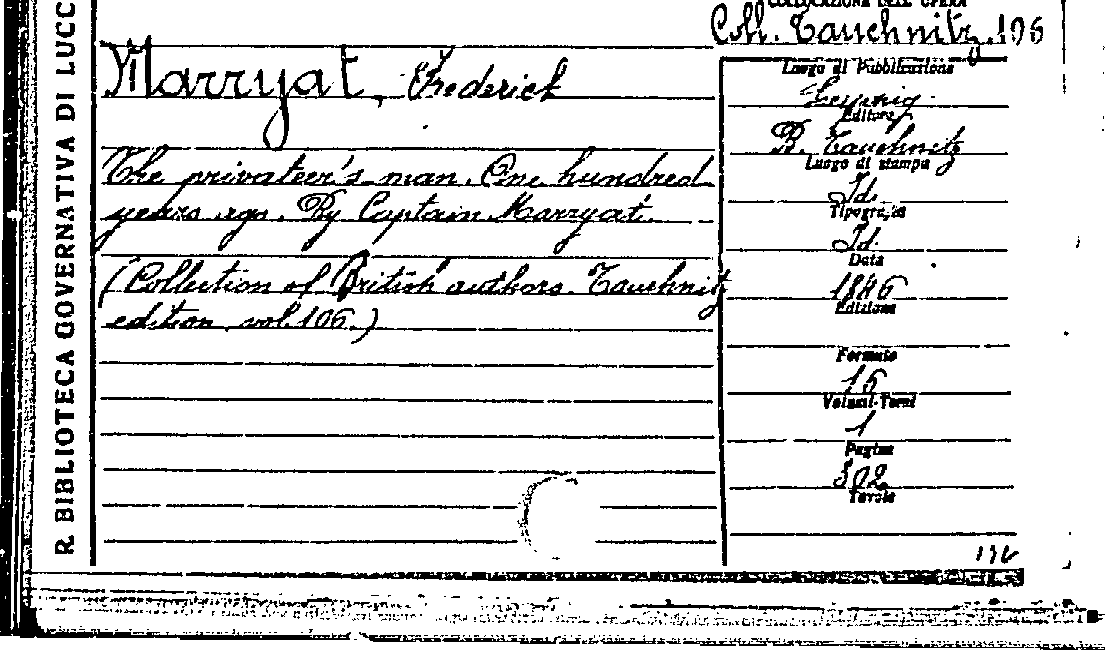 R. BIBLIOTECA GOVERNATIVA DI LUCC
COLLOCAZIONE DELL' OPERA
Coll. Tauchnitz, 106
Marryat, Frederick
The privateer's man. One hundred
years ago. By Captain Marryat.
(Collection of British authors. Tauchnitz
edition, vol. 106.)
Luogo di Pubblicazione
Leipzig
Editore
B. Tauchnitz
Luogo di stampa
Id.
Tipografia
Id.
Data
1846
Edizione
Formato
16
Volumi-Tomi
1
Pagine
302
Tavole